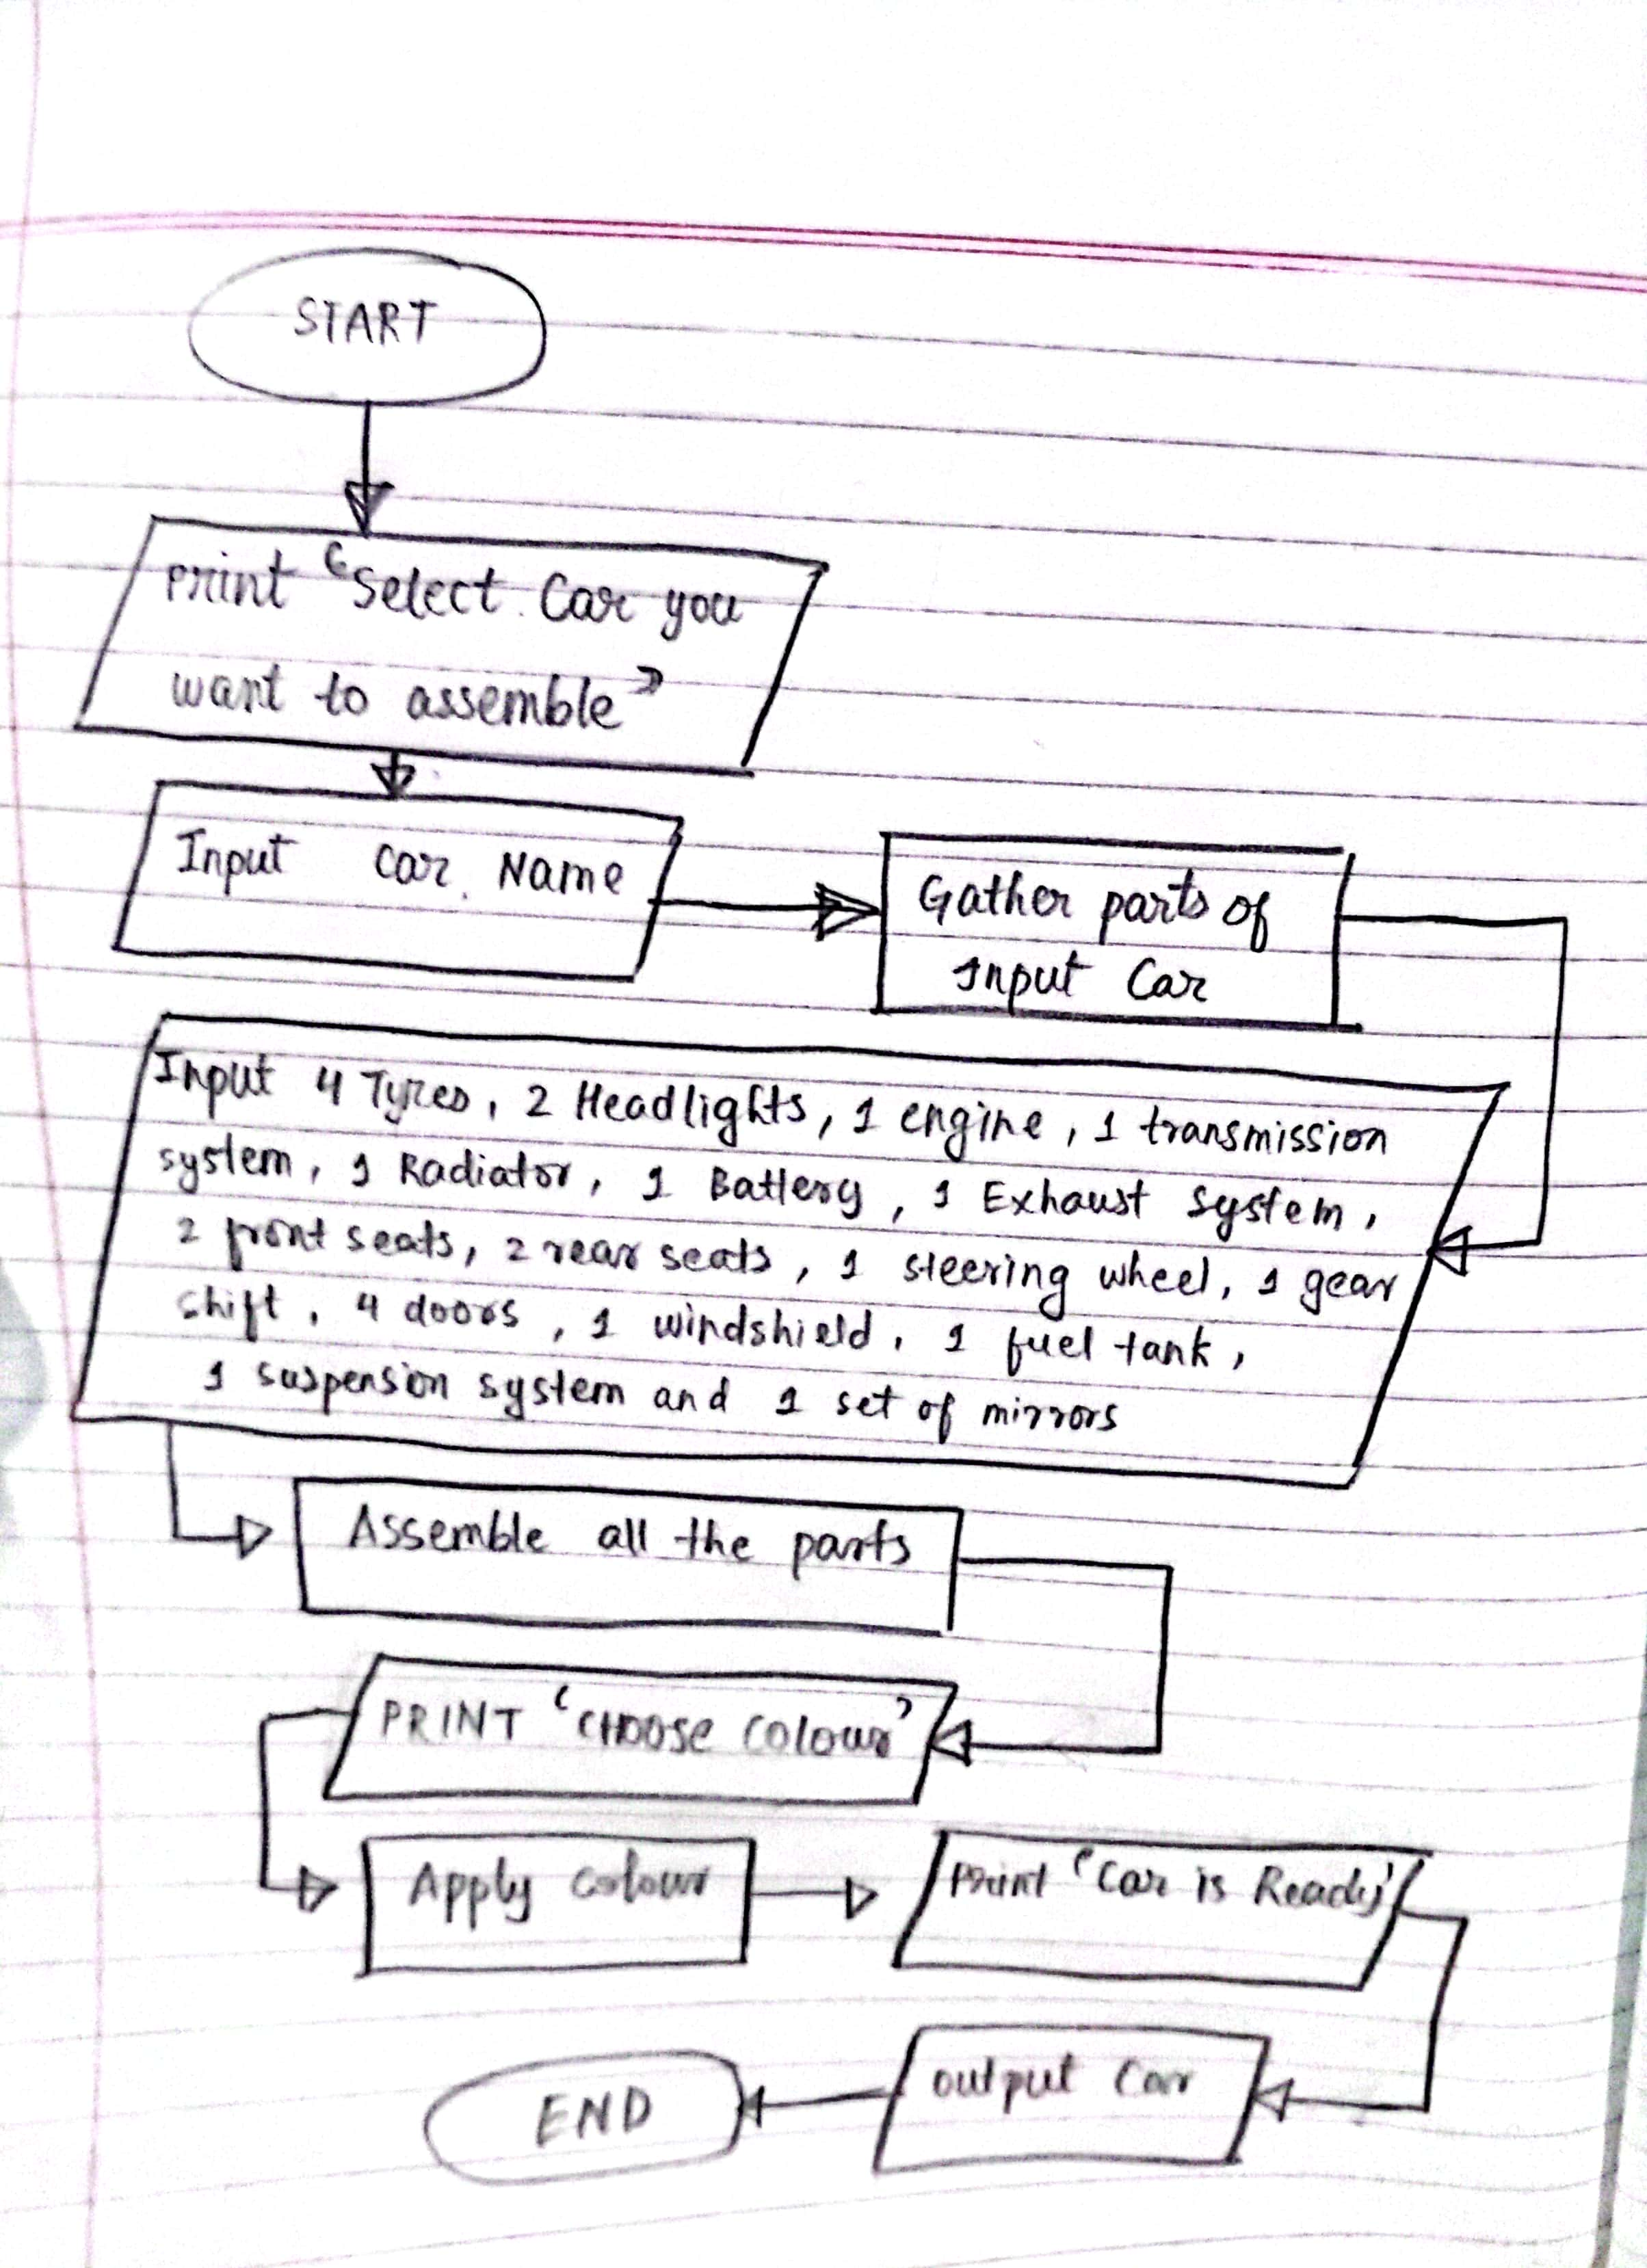 START
Print "Select Car you
want to assemble"
Input Car Name
Gather parts of
Input Car
Input 4 Tyres, 2 Headlights, 1 engine, 1 transmission
system, 1 Radiator, 1 Battery, 1 Exhaust system,
2 front seats, 2 rear seats, 1 steering wheel, 1 gear
shift, 4 doors, 1 windshield, 1 fuel tank,
1 suspension system and 1 set of mirrors
Assemble all the parts
PRINT 'CHOOSE COLOUR'
Apply colour
Print 'Car is Ready'
output Car
END